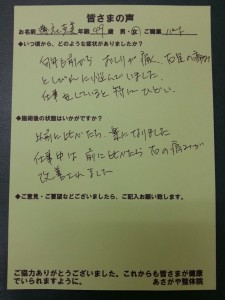 皆さまの声
お名前 年齢 49 歳 男・女 ご職業 パート
◆いつ頃から、どのような症状がありましたか?
何年も前から おしりが痛く、右足の痛み
としびれに悩んでいました。
仕事をしていると特にひどい。
◆施術後の状態はいかがですか?
以前に比べたら 楽になりました
仕事中は 前に比べたら 右の痛みが
改善されました
◆ご意見・ご要望などございましたら、ご記入お願い致します。
ご協力ありがとうございました。これからも皆さまが健康
でいられますように。 あさがや整体院